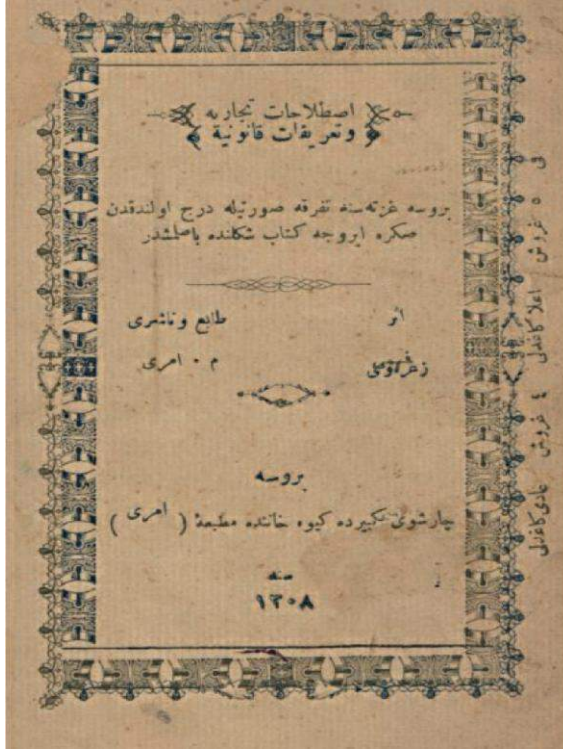 اصطلاحات تجاریه
وتعریفات قانونیة
بروسه غزته‌سنه تفرقه صورتیله درج اولندقدن
صکره ایروجه کتاب شکلنده باصلمشدر
اثر
طابع وناشری
م ۰ امری
بروسه
چارشوی کبیرده کیوه خاننده مطبعهٔ ( امری )
سنه
١٣٠٨
ق ٥ غروش اعلا کاغدلی ٤ غروش عادی کاغدلی